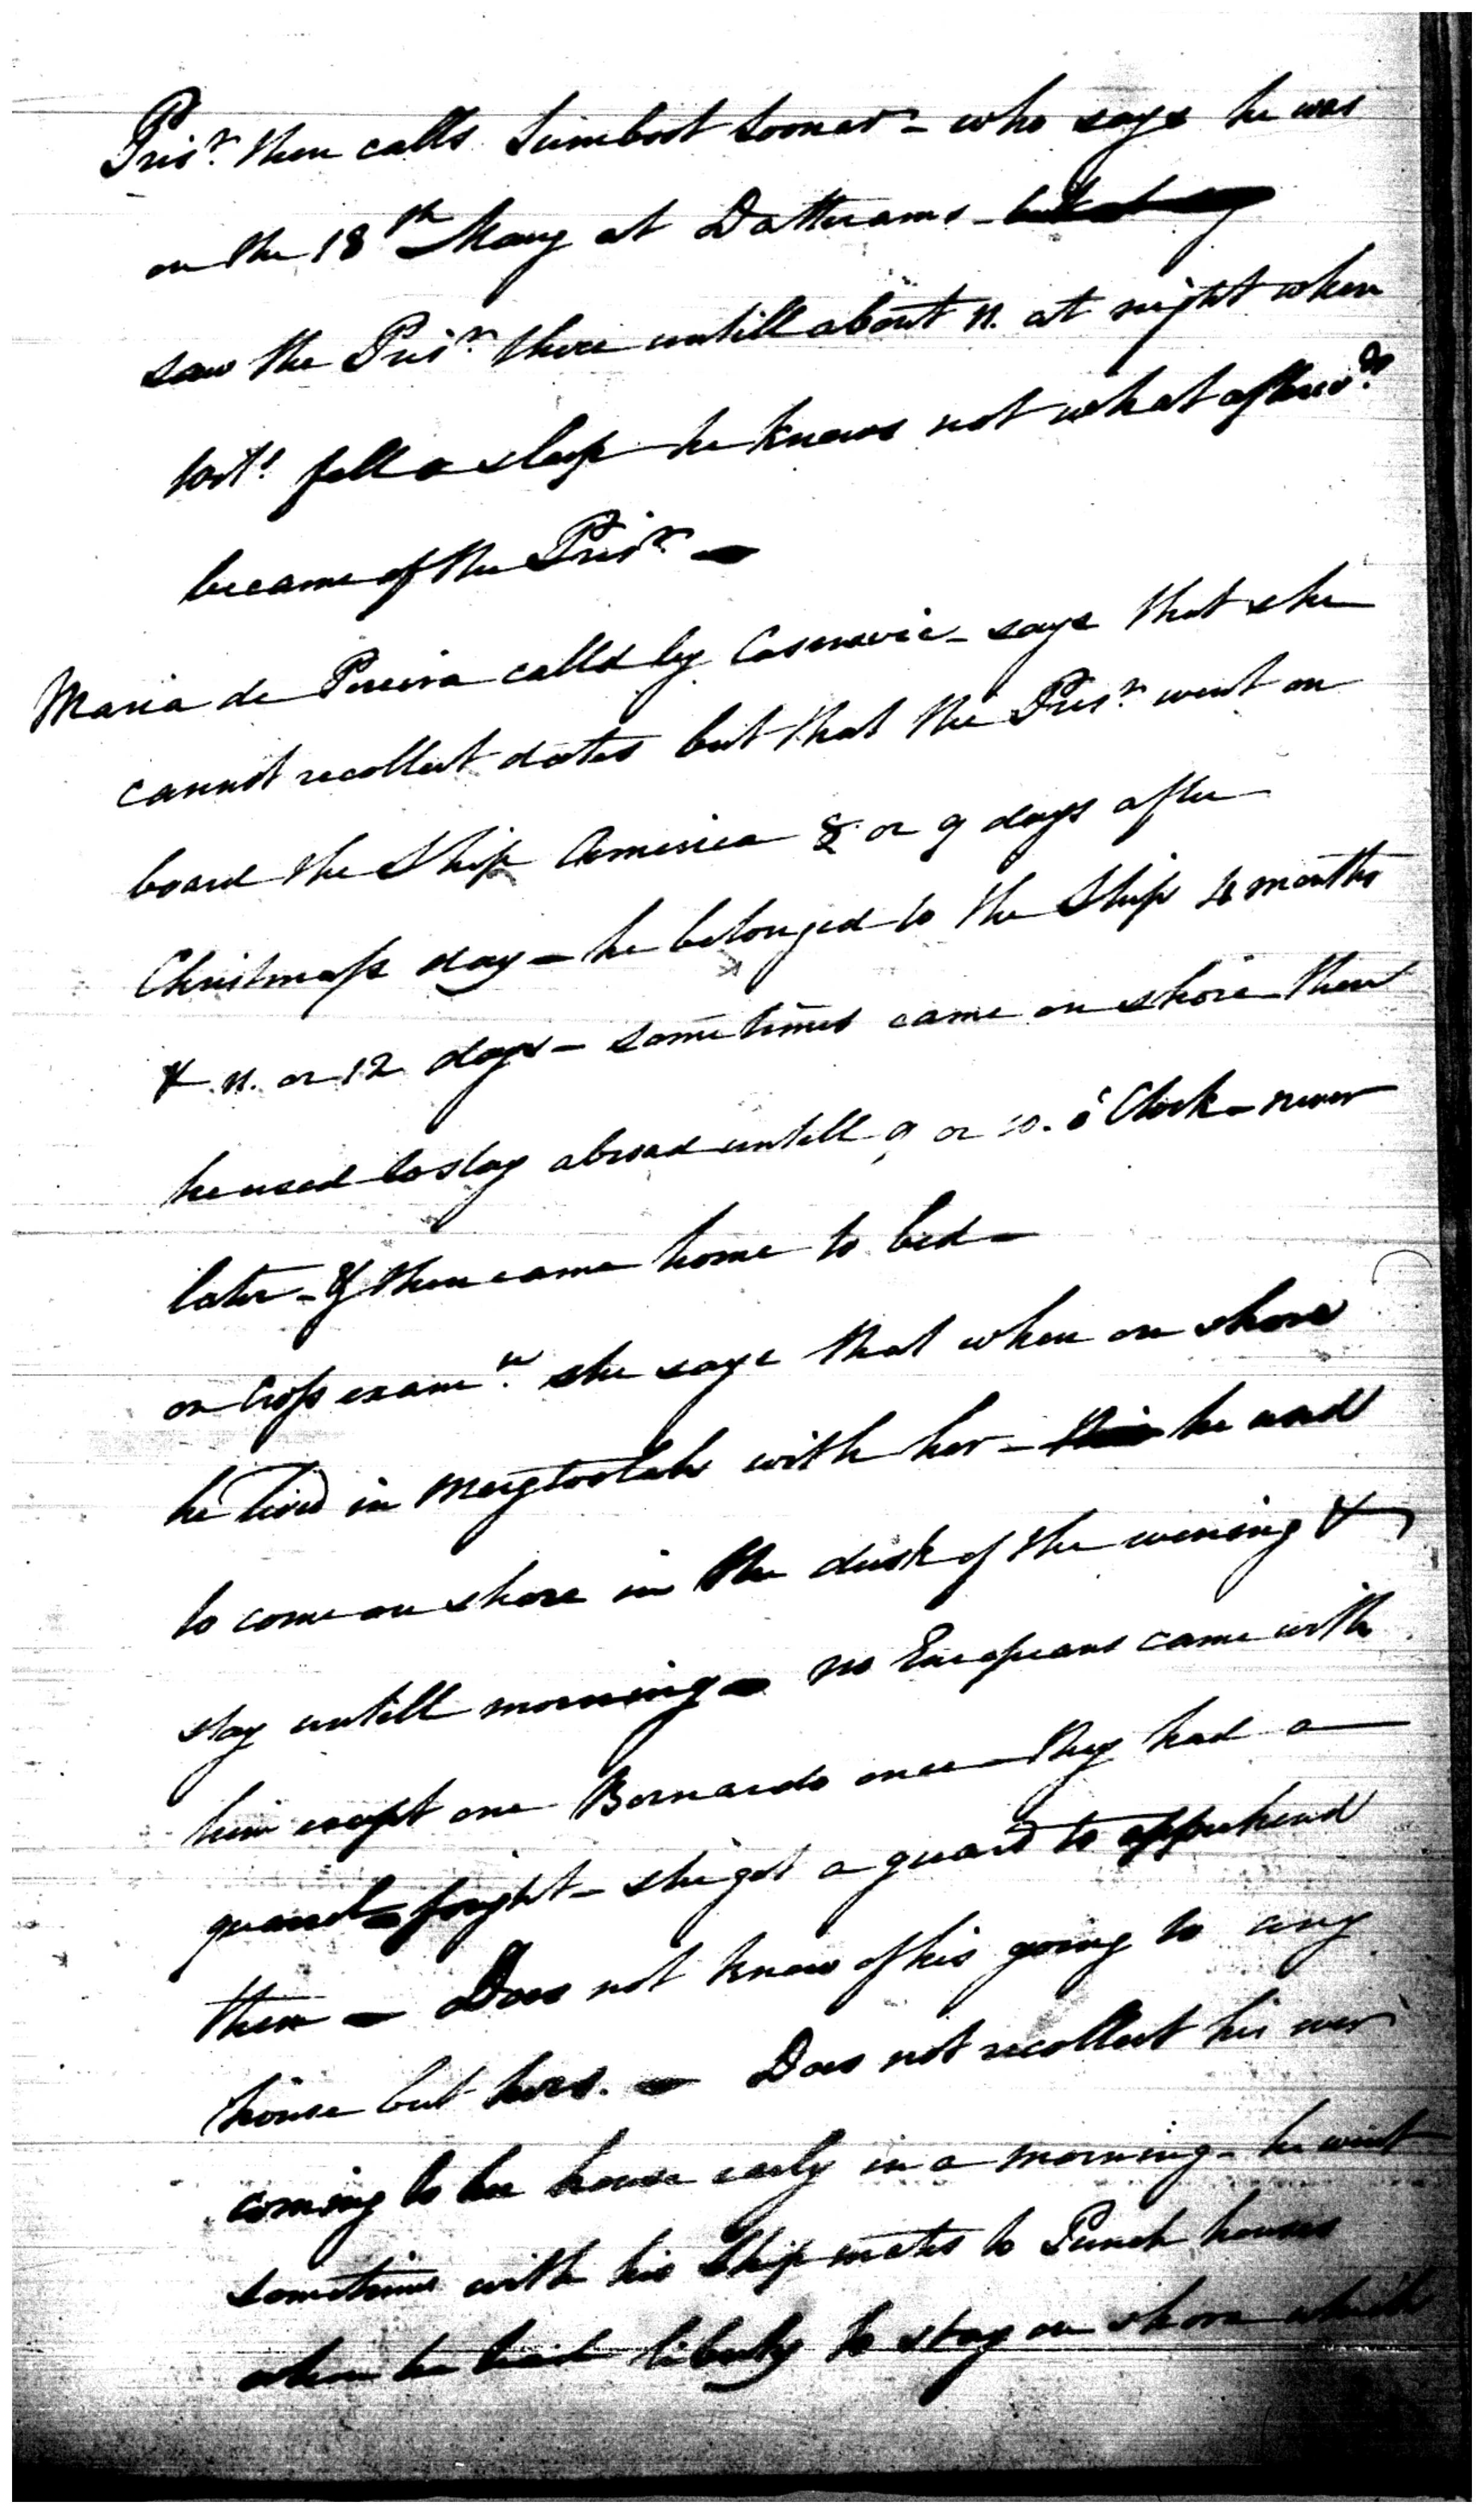 Prisr. then calls Sumboot Soonar - who says he was
on the 18th May at Dattarams -
saw the Prisr. there untill about 11. at night when
Witt. fell asleep he knows not what afterwds.
became of the Prisr. -
Maria de Pereira calld by - says that she
cannot recollect dates but that the Prisr. went on
board the Ship America 8 or 9 days after
Christmass day - he belonged to the Ship 4 months
& 11. or 12 days - sometimes came on shore then
he used to stay abroad untill 9 or 10. o'Clock - never
later - & then came home to bed -
on Cross examn. she says that when on shore
he lived in with her - he used
to come on shore in the dusk of the evening &
stay untill morning - no Europeans came with
him except one Bernardo once - they had a
quarrel - fought - she got a guard to apprehend
them - Does not know of his going to any
house but hers. - Does not recollect his ever
coming to her house early in a morning - he went
sometimes with his Ship mates to Punch houses
when he had liberty to stay on shore which